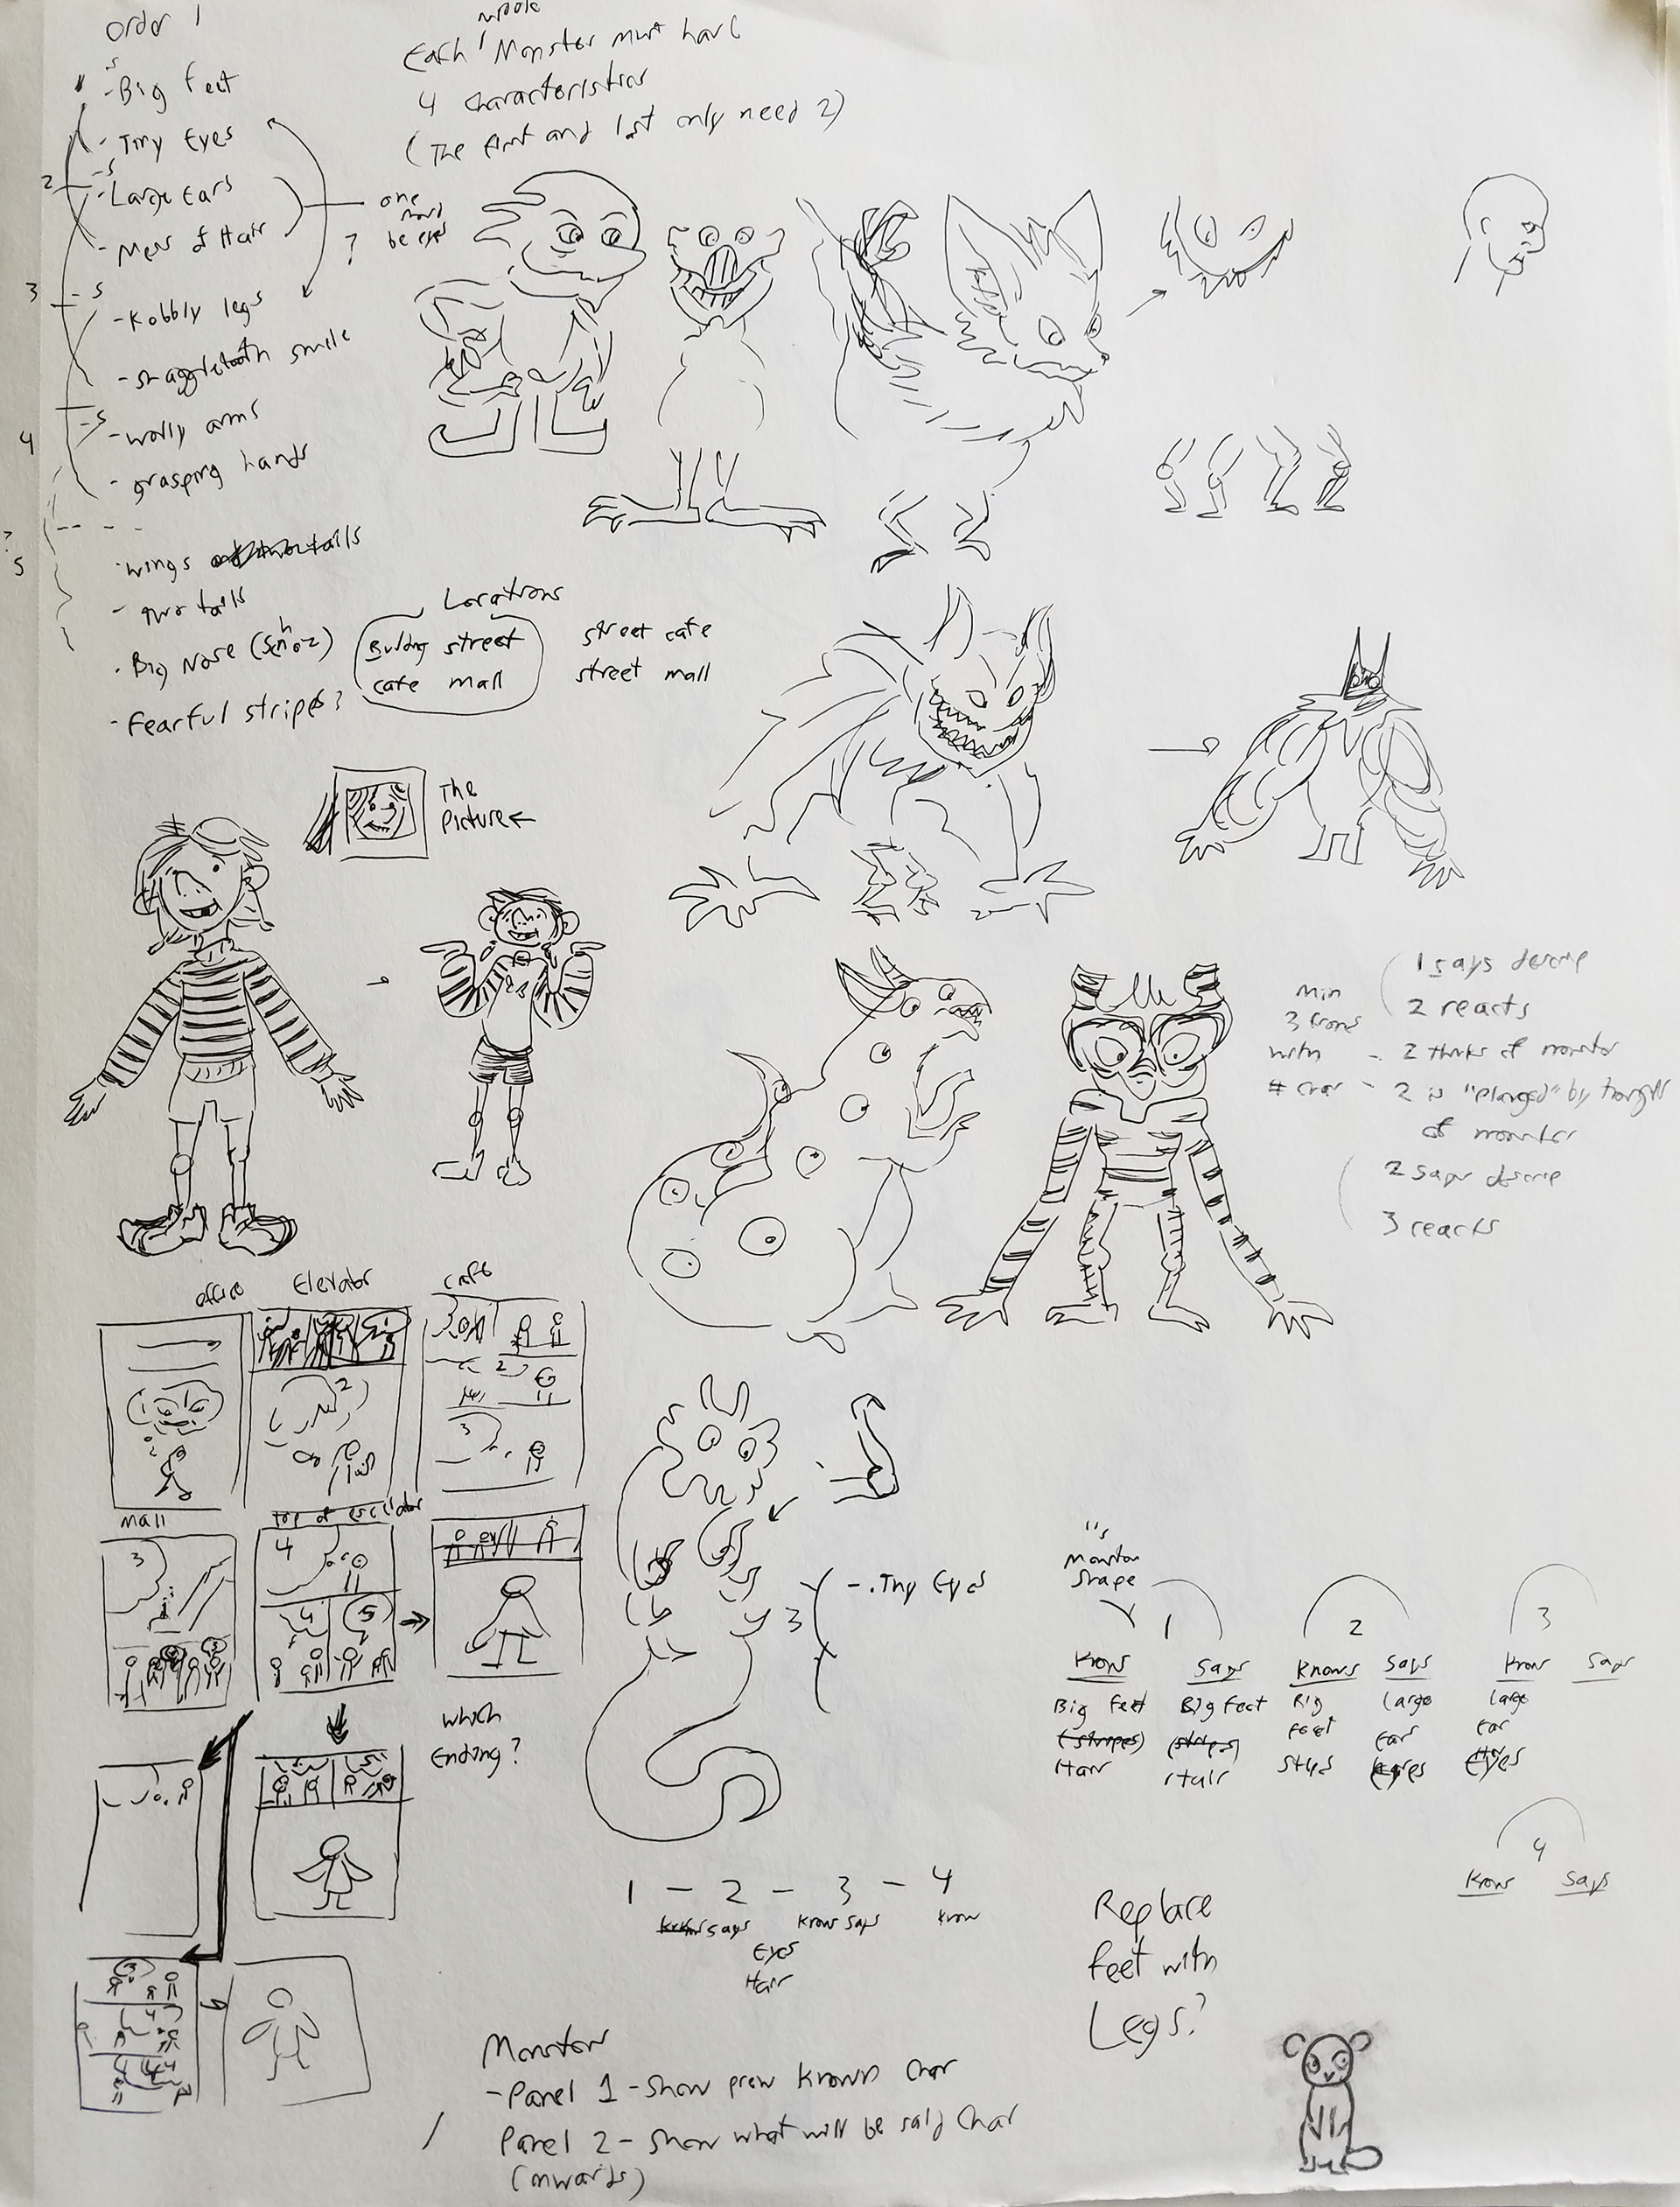 Order 1
- Big feet
- Tiny Eyes
- Large Ears
- Mess of Hair
- Kobbly legs
- snaggletooth smile
- wolly arms
- grasping hands
wings
- two tails
- Big Nose (Schnoz)
- Fearful stripes?
2
3
4
? 5
s
s
s
s
one must
? be eyes
middle
Each Monster must have
4 characteristics
(The first and last only need 2)
Locations
Building street
cafe mall
street cafe
street mall
The
Picture
1 says descrip
2 reacts
Min
3
with
# char
- 2 thinks of monster
- 2 is "plagued" by thought
of monster
2 says descrip
3 reacts
office
Elevator
cafe
2
2
3
Mall
top of escalator
3
4
4
5
which
Ending?
3
- . Tiny Eyes
1's
Monster
shape
1
2
3
Knows
Says
Knows
Says
Know
Says
Big Feet
Big Feet
Big
Large
Large
(stripes)
(stripes)
Feet
Ear
Ear
Hair
Hair
Eyes
Eyes
4
Know
Says
1 - 2 - 3 - 4
says
Know says
Know
Eyes
Hair
Replace
feet with
Legs?
Monster
- Panel 1 - Show prev known char
Panel 2 - Show what will be said char
(onwards)